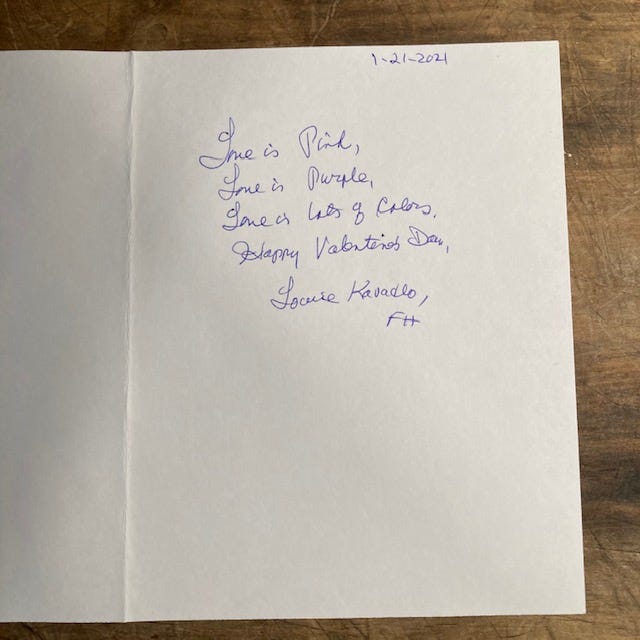 1-21-2021
Love is Pink,
Love is Purple,
Love is lots of Colors.
Happy Valentines Day,
Louise Kavadlo,
FH